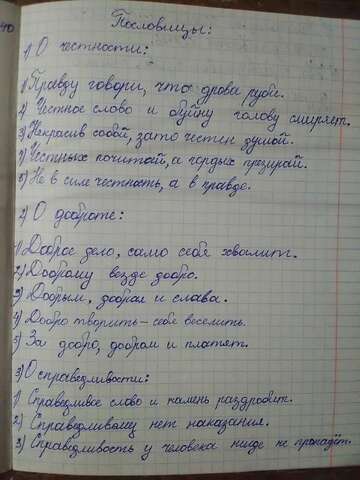 Пословицы:
1) О честности:
1) Правду говори, что дрова руби.
2) Честное слово и буйну голову смиряет.
3) Некрасив собой, зато честен душой.
4) Честных почитай, а гордых презирай.
5) Не в силе честность, а в правде.
2) О доброте:
1) Доброе дело, само себя хвалит.
2) Доброму везде добро.
3) Добрым, добрая и слава.
4) Добро творить - себя веселить.
5) За добро, добром и платят.
3) О справедливости:
1) Справедливое слово и камень раздробит.
2) Справедливому нет наказания.
3) Справедливость у человека нигде не пропадёт.